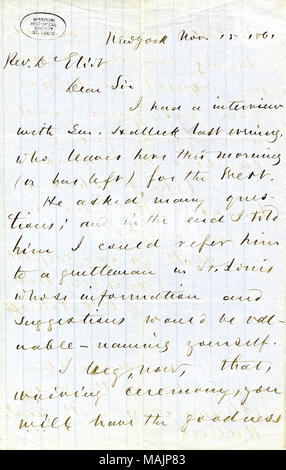 MISSOURI
HISTORICAL
SOCIETY
ST. LOUIS
New York Nov. 15 1861
Rev. Dr Eliot
Dear Sir
I had a interview
with Gen. Halleck last evening,
who leaves here this morning
(or has left) for the West.
He asked many ques-
tions; and in the end I told
him I could refer him
to a gentleman in St. Louis
whose information and
suggestions would be val-
uable—naming yourself.
I beg, now, that,
waiving ceremony, you
will have the goodness
alamy
Image ID: MAJP83
www.alamy.com